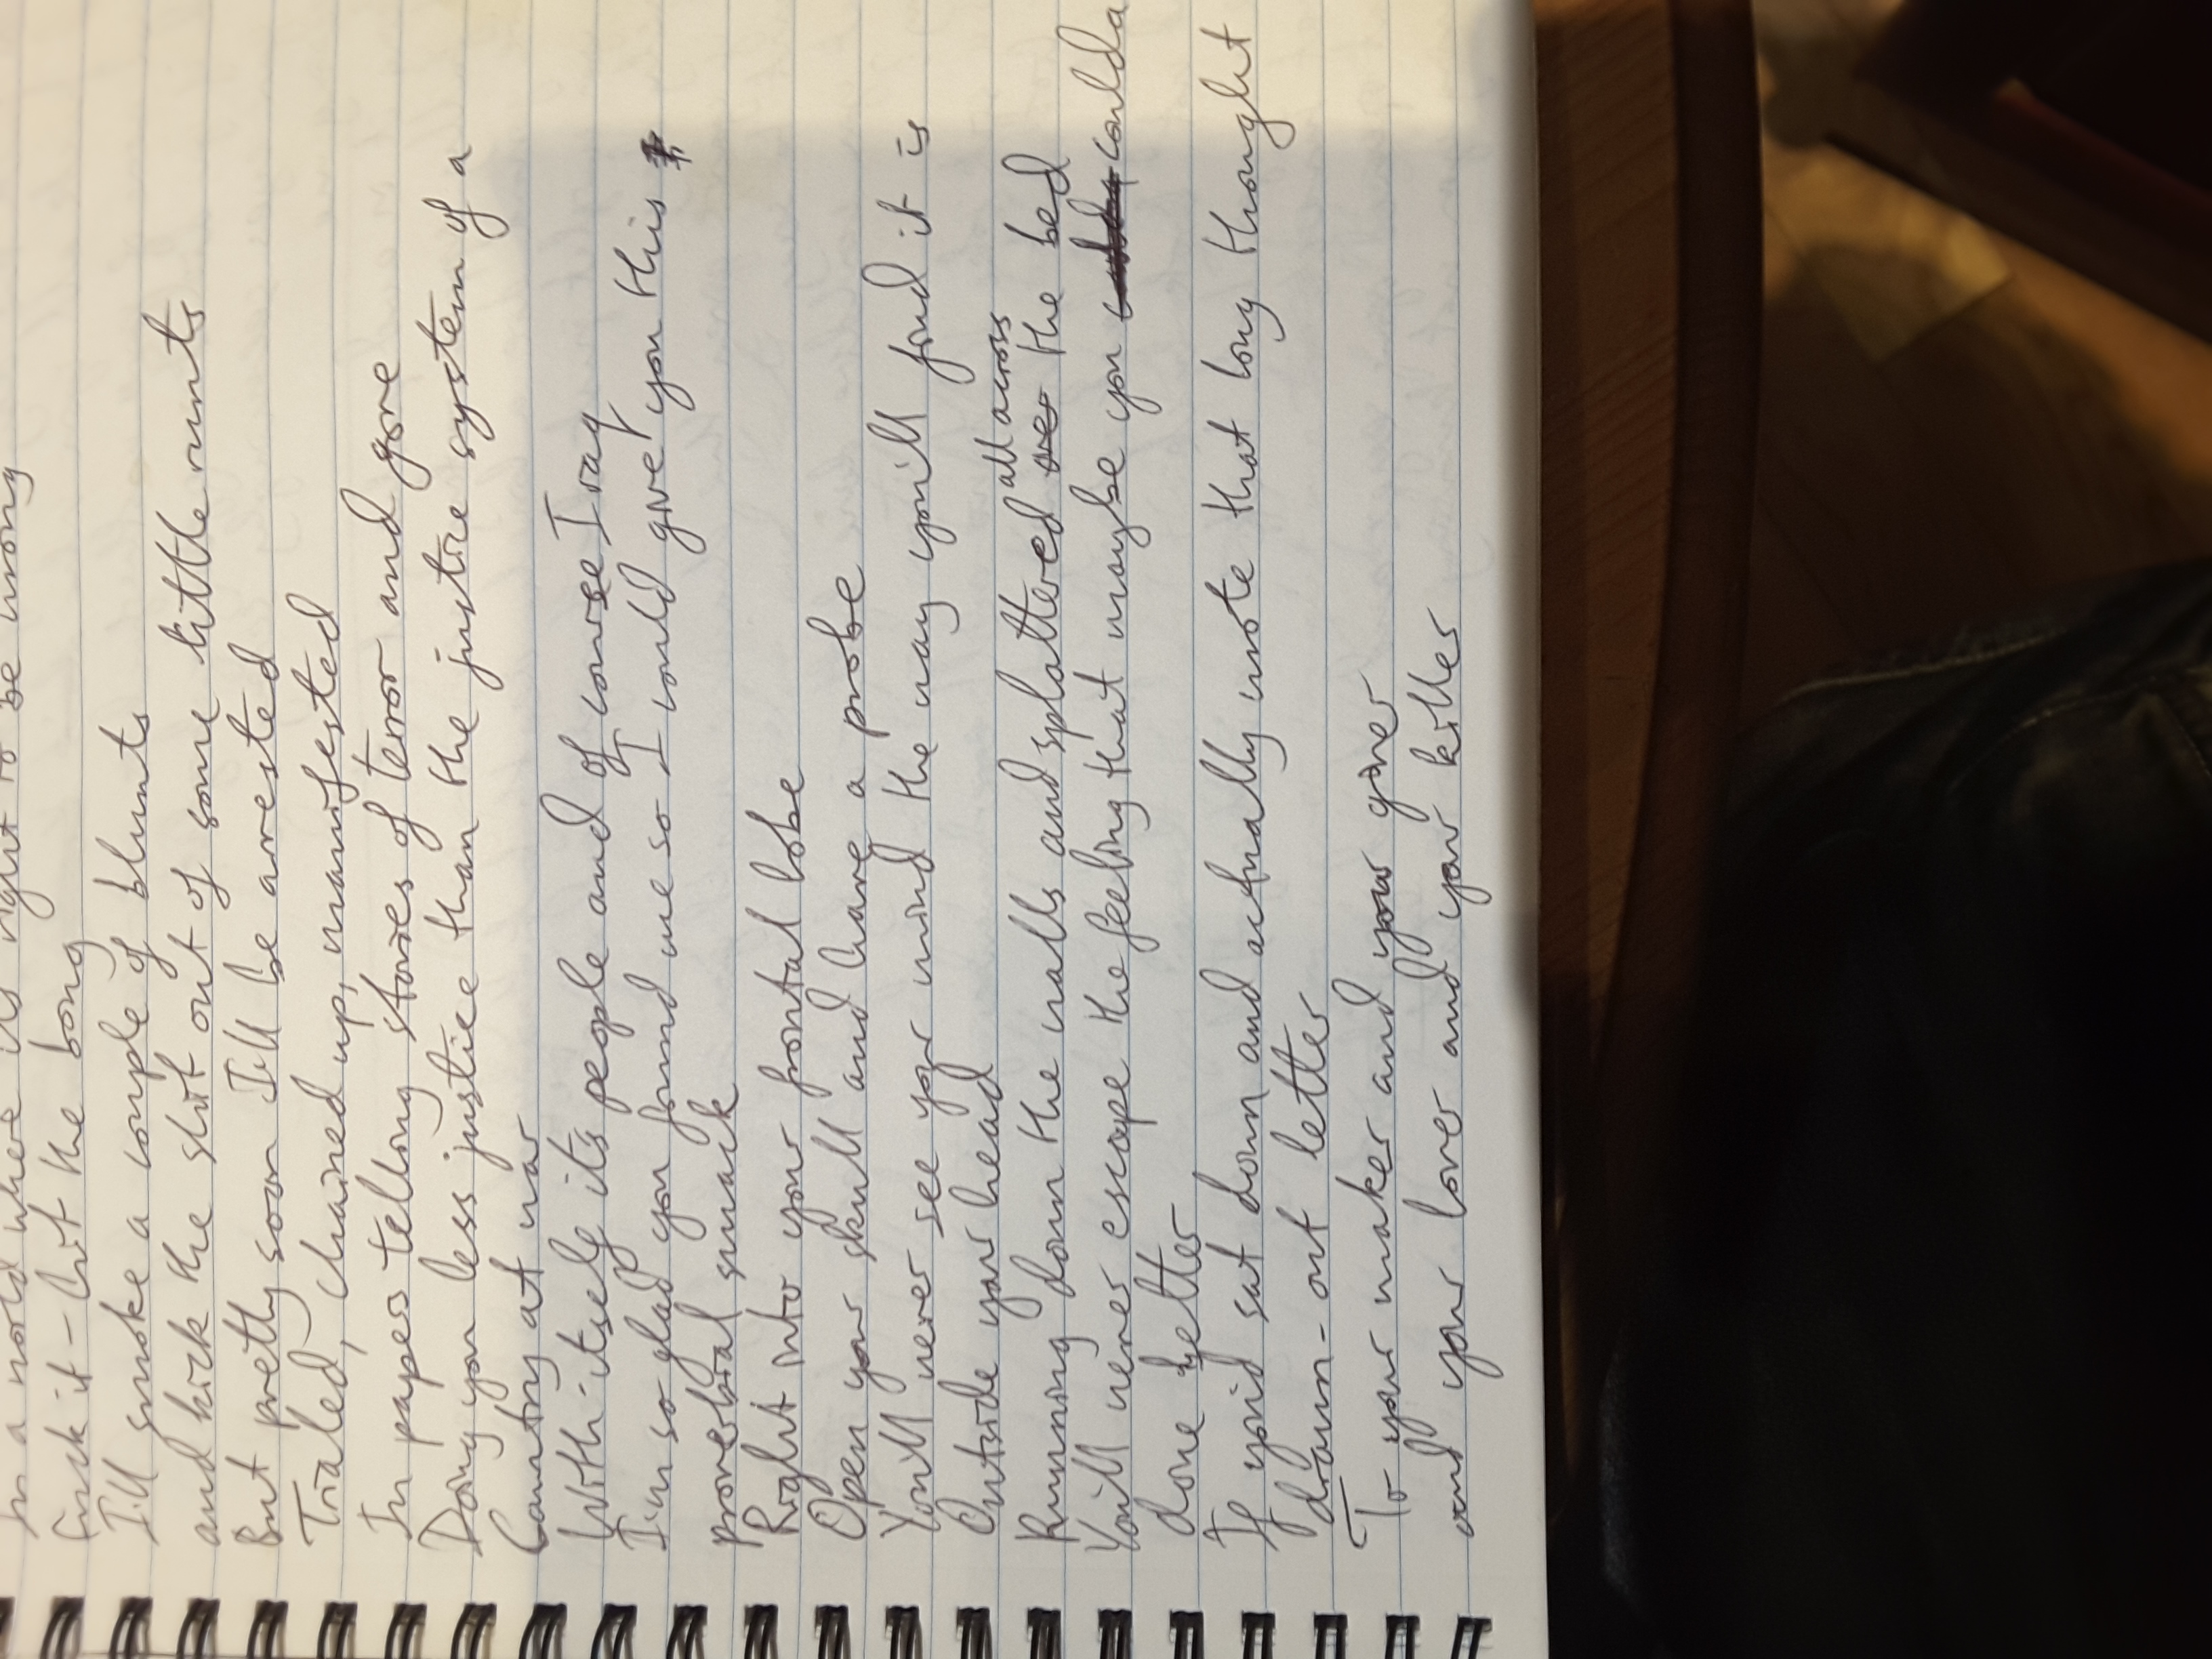 In a world where it's right to be wrong
Fuck it - hit the bong
I'll smoke a couple of blunts
and kick the shit out of some little runts
But pretty soon I'll be arrested
Trialed, chained up, manifested
In papers telling stories of terror and gore
Doing you less justice than the justice system of a
Country at war
With itself it's people and of course Iraq
I'm so glad you found me so I could give you this
proverbial smack
Right into your frontal lobe
Open your skull and have a probe
You'll never see your mind the way you'll find it is
Outside your head
all across
Running down the walls and splattered over the bed
You'll never escape the feeling that maybe you coulda
done better
If you'd sat down and actually wrote that long thought
drawn-out letter
To your maker and your giver
and your lover and your killer